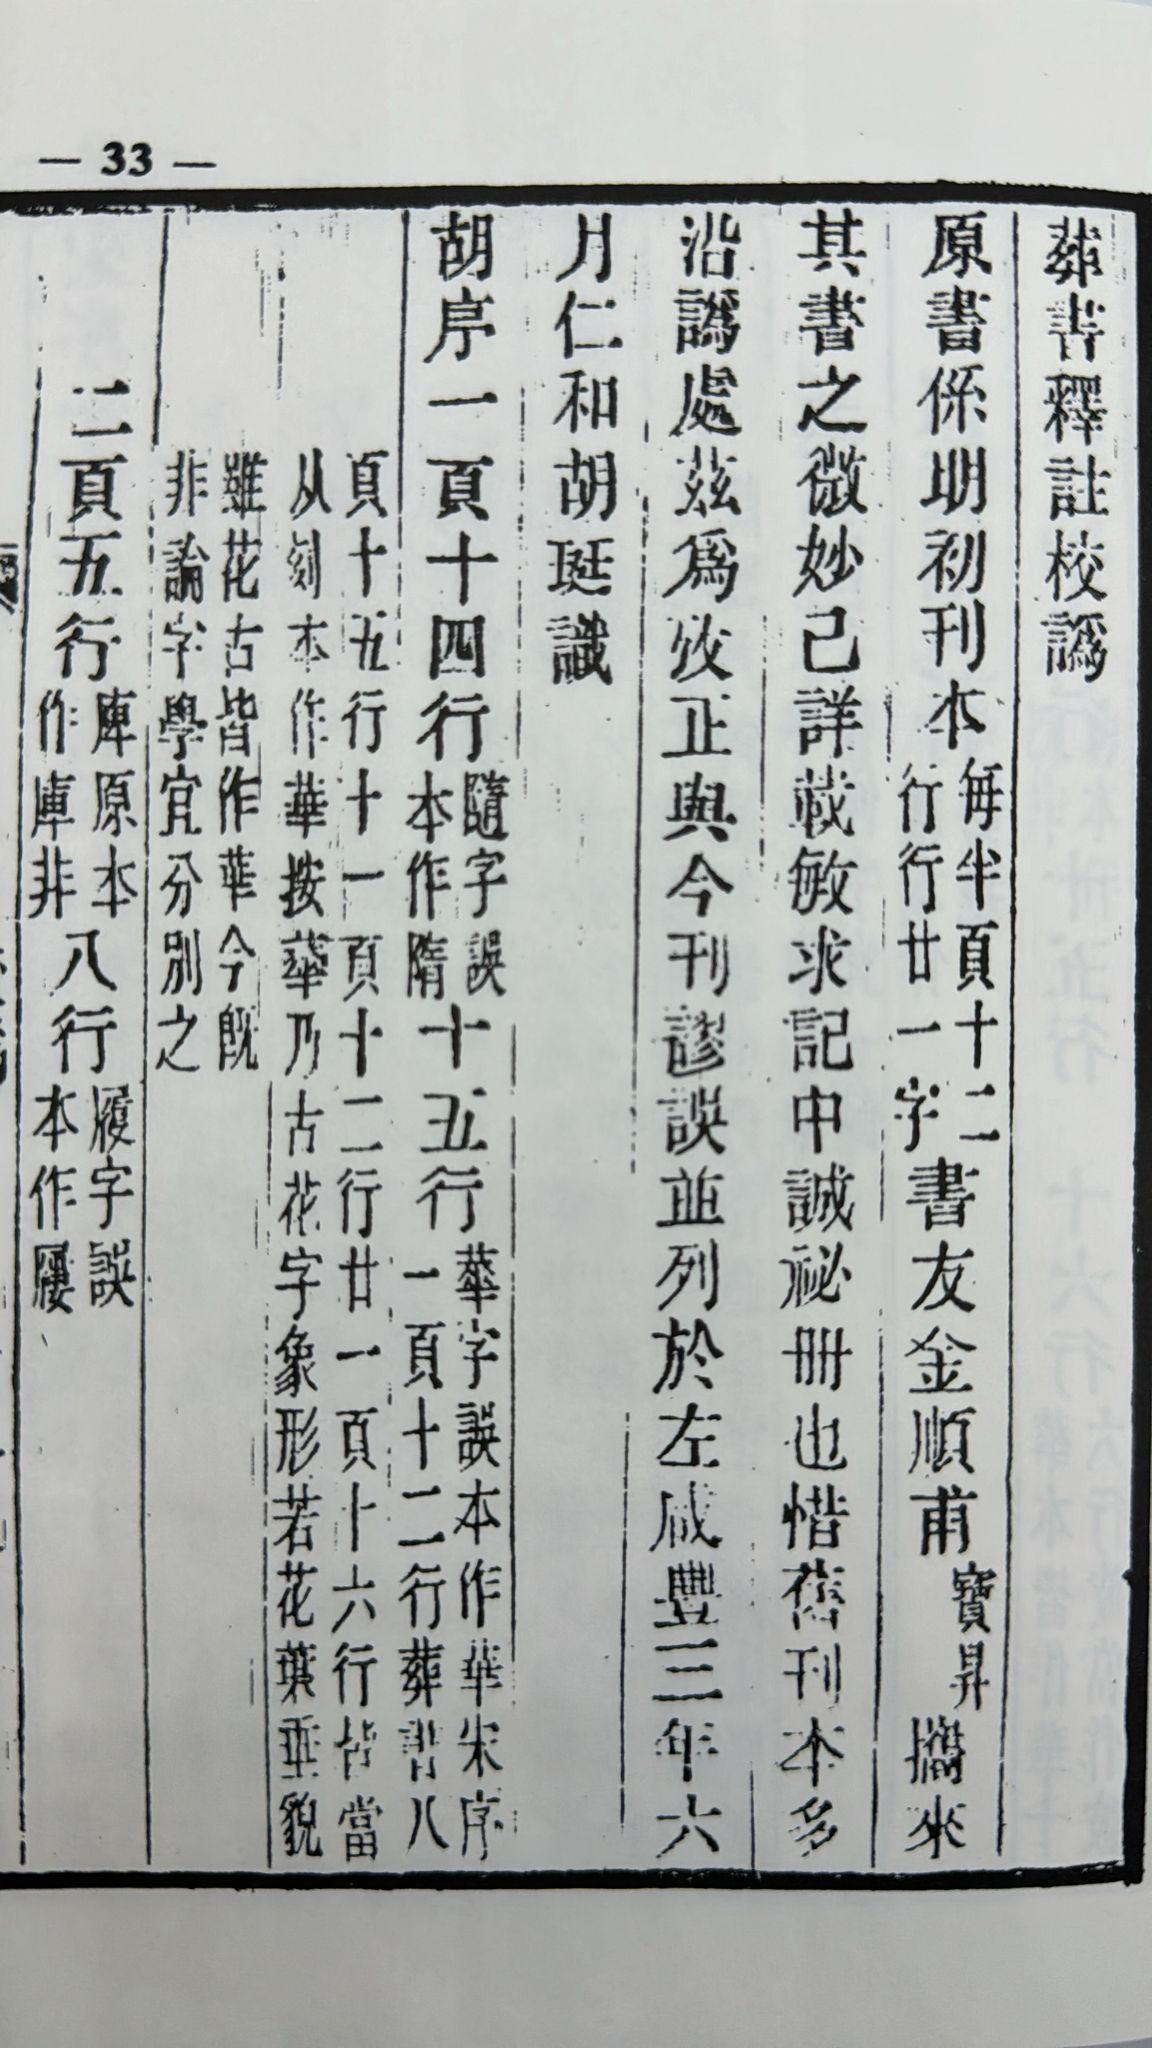 — 33 —
葬書釋註校譌
原書係明初刊本每半頁十二行行廿一字書友金順甫寶昇攜來
其書之微妙已詳載敏求記中誠祕冊也惜舊刊本多
沿譌處茲爲攷正與今刊謬誤並列於左咸豐三年六
月仁和胡珽識
胡序一頁十四行隨字誤本作隋十五行蕐字誤本作華宋序一頁十二行葬書八
頁十五行十一頁十二行廿一頁十六行皆當从刻本作華按蕐乃古花字象形若花葉垂貌
雖花古皆作華今旣非論字學宜分別之
二頁五行庫原本作庫非八行履字誤本作屨